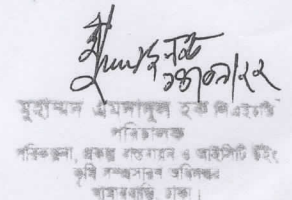 মুহাম্মদ এমদাদুল হক পিএইচডি
পরিচালক
পরিকল্পনা, প্রকল্প বাস্তবায়ন ও আইসিটি উইং
কৃষি সম্প্রসারণ অধিদপ্তর
খামারবাড়ি, ঢাকা।